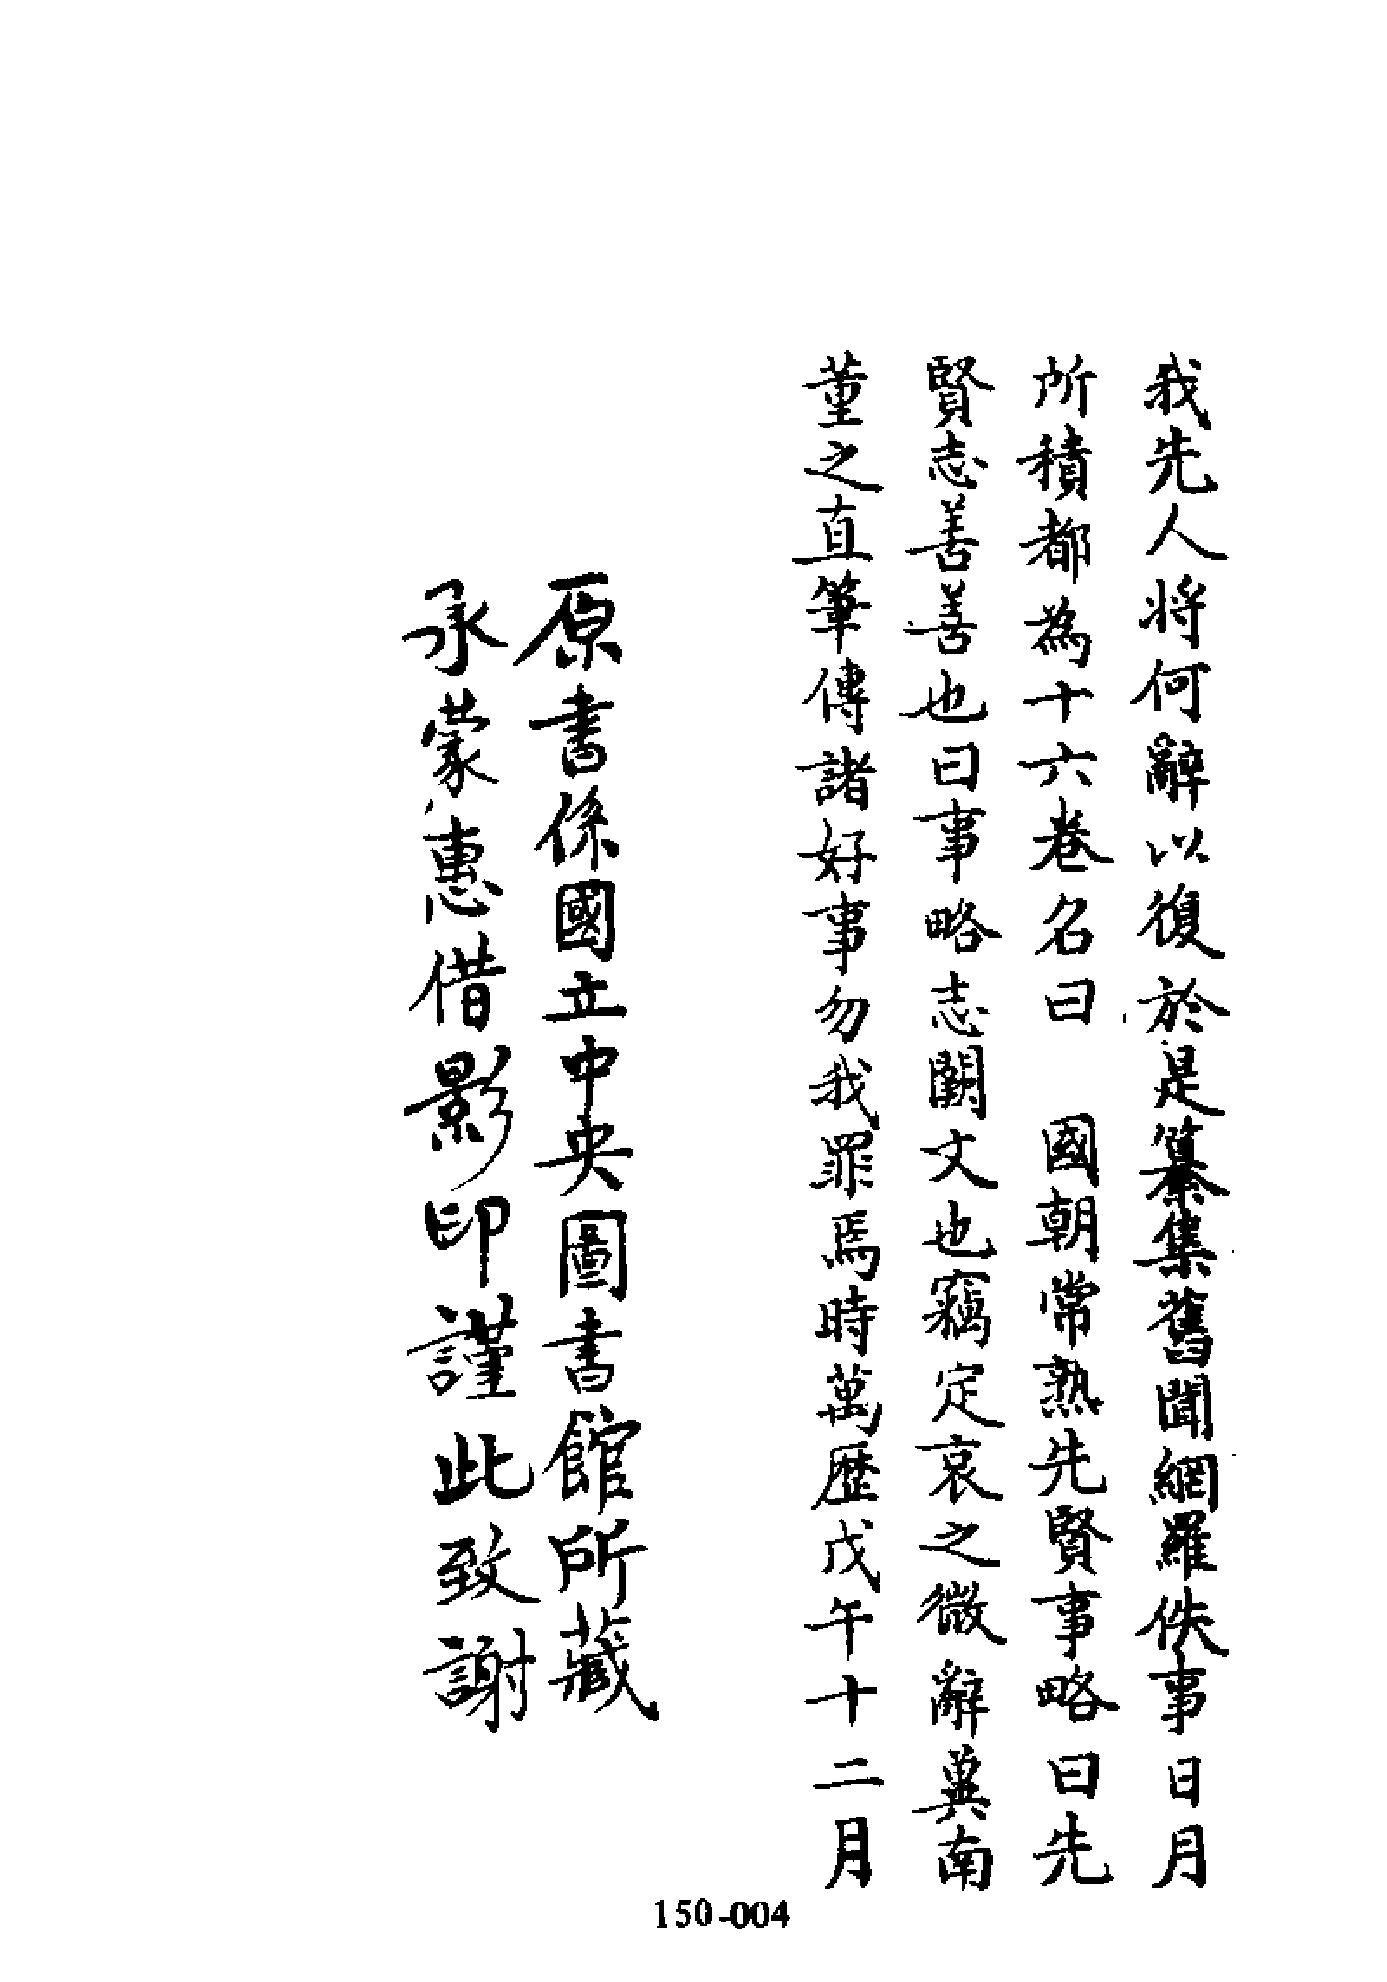 我先人將何辭以復於是纂集舊聞網羅佚事日月
所積都為十六卷名曰　國朝常熟先賢事略曰先
賢志善善也曰事略志闕文也竊定哀之微辭冀南
董之直筆傳諸好事勿我罪焉時萬歷戊午十二月
原書係國立中央圖書館所藏
承蒙惠借影印謹此致謝
150-004